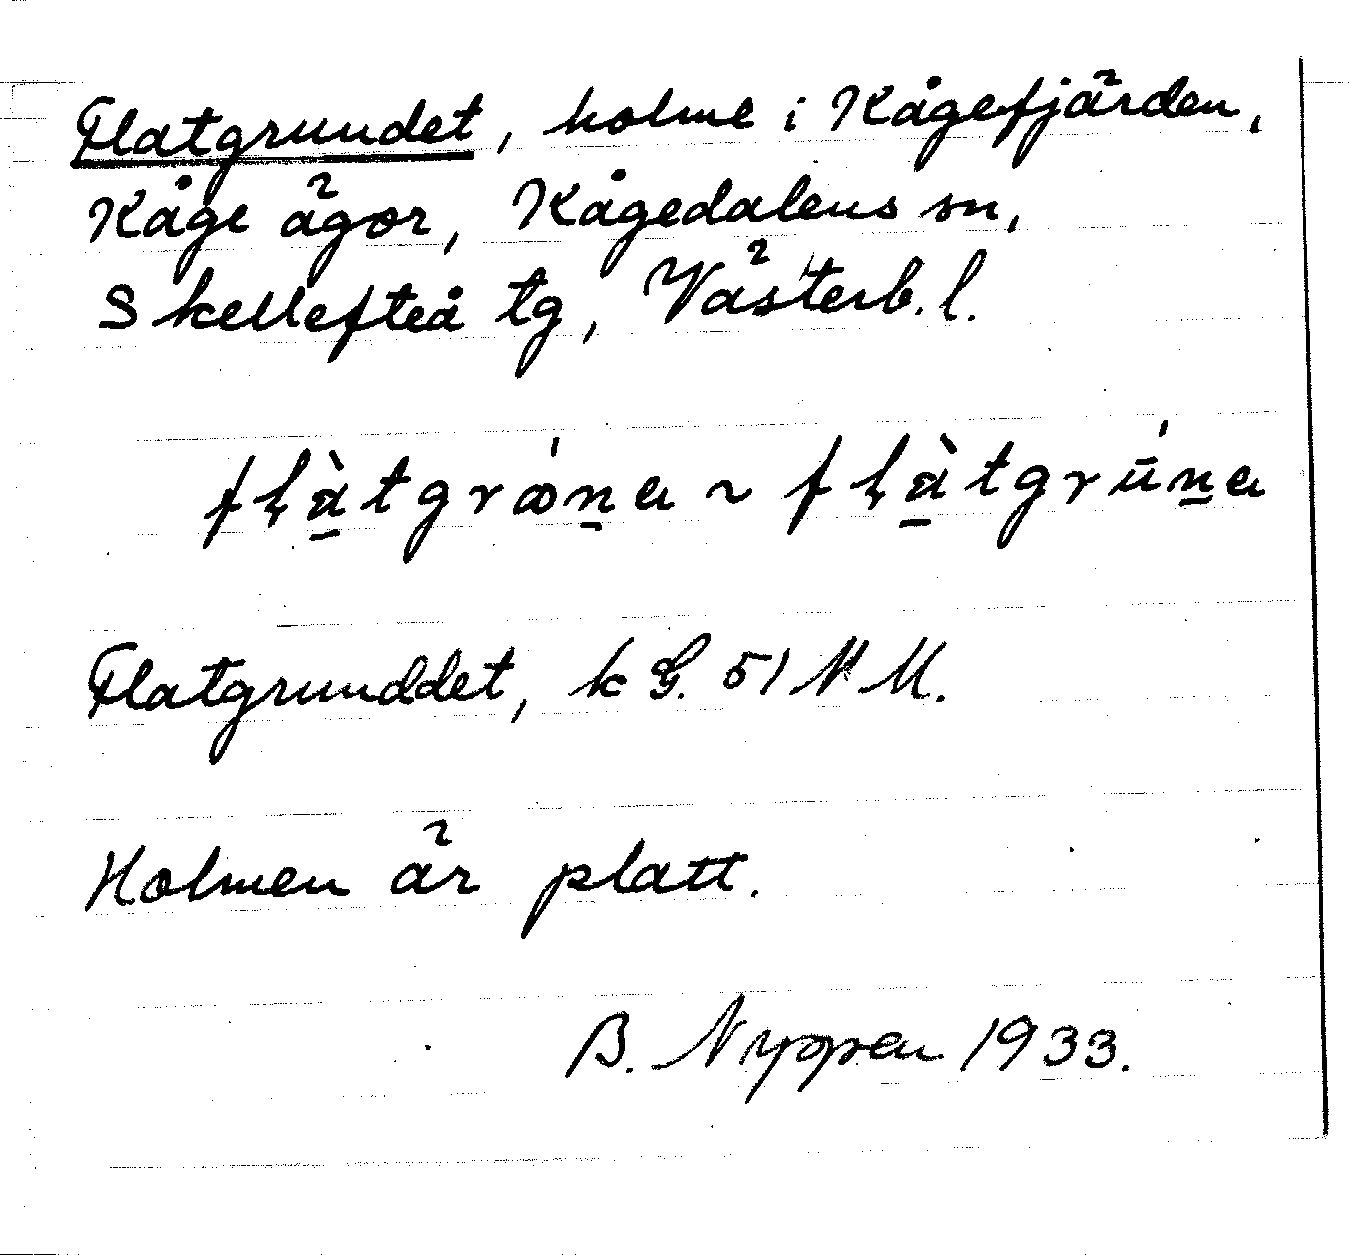 Flatgrundet, holme i Kågefjärden,
Kåge ägor, Kågedalens sn,
Skellefteå tg, Västerb. l.
Flatgrunddet, k G. 51 N M.
Holmen är platt.
B. Nyppen 1933.